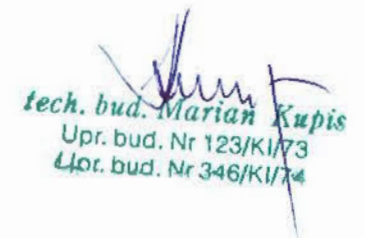 tech. bud. Marian Kupis
Upr. bud. Nr 123/KI/73
Upr. bud. Nr 346/KI/74